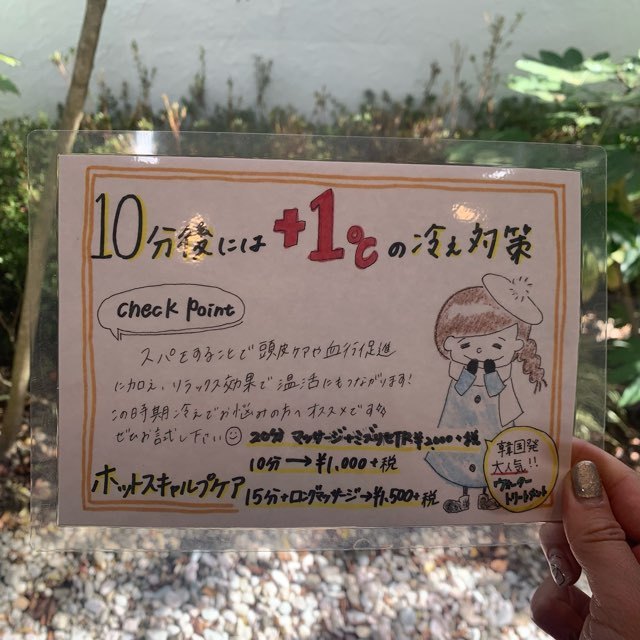 10分後には +1℃の冷え対策
check point
スパをすることで頭皮ケアや血行促進
に加え、リラックス効果で温活にもつながります!
この時期冷えでお悩みの方へオススメです
ぜひお試し下さい☺
20分 マッサージ+ミズリセTR ¥2,000+税
10分→¥1,000+税
ホットスキャルプケア
15分+ロングマッサージ→¥1,500+税
韓国発
大人気!!
ウォーター
トリートメント